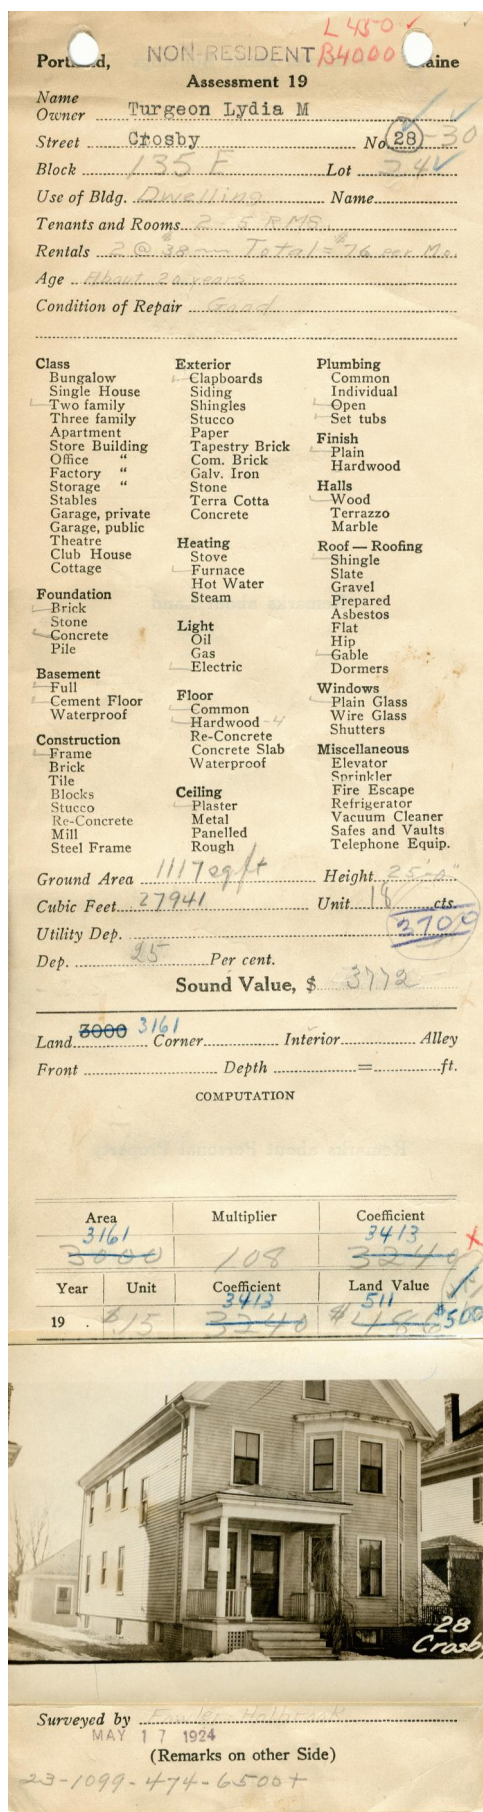 L 450 ✓
NON-RESIDENT B4000
Portland, Maine
Assessment 19
Name
Owner Turgeon Lydia M
Street Crosby No. 28-30
Block 135 F Lot 24
Use of Bldg. Dwelling Name
Tenants and Rooms 2-5 RMS.
Rentals 2 @ $38 — Total = $76 per Mo.
Age About 20 years
Condition of Repair Good
Class
Bungalow
Single House
Two family
Three family
Apartment
Store Building
Office "
Factory "
Storage "
Stables
Garage, private
Garage, public
Theatre
Club House
Cottage
Foundation
Brick
Stone
Concrete
Pile
Basement
Full
Cement Floor
Waterproof
Construction
Frame
Brick
Tile
Blocks
Stucco
Re-Concrete
Mill
Steel Frame
Exterior
Clapboards
Siding
Shingles
Stucco
Paper
Tapestry Brick
Com. Brick
Galv. Iron
Stone
Terra Cotta
Concrete
Heating
Stove
Furnace
Hot Water
Steam
Light
Oil
Gas
Electric
Floor
Common
Hardwood - 4
Re-Concrete
Concrete Slab
Waterproof
Ceiling
Plaster
Metal
Panelled
Rough
Plumbing
Common
Individual
Open
Set tubs
Finish
Plain
Hardwood
Halls
Wood
Terrazzo
Marble
Roof — Roofing
Shingle
Slate
Gravel
Prepared
Asbestos
Flat
Hip
Gable
Dormers
Windows
Plain Glass
Wire Glass
Shutters
Miscellaneous
Elevator
Sprinkler
Fire Escape
Refrigerator
Vacuum Cleaner
Safes and Vaults
Telephone Equip.
Ground Area 1117 sq ft Height 25'-0"
Cubic Feet 27941 Unit 18 cts.
3700
Utility Dep.
Dep. 25 Per cent.
Sound Value, $ 3772
Land 3000 3161 Corner Interior Alley
Front Depth = ft.
COMPUTATION
Area Multiplier Coefficient
3161 3413
3000 108 3240
Year Unit Coefficient Land Value
3413 511
19 . $15 3240 $486 $500
28
Crosby
Surveyed by Fowler-Holbrook
MAY 17 1924
(Remarks on other Side)
23-1099-474-6500+